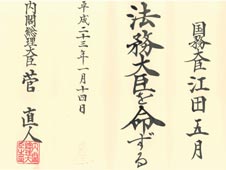 国務大臣 江田五月
法務大臣を命ずる
平成二十三年一月十四日
内閣総理大臣 菅 直人